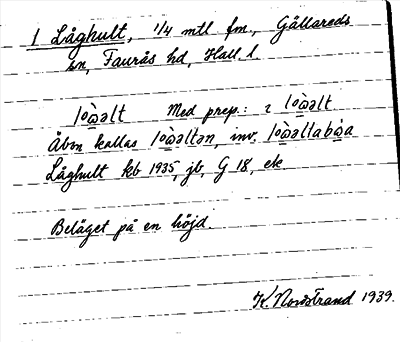 1 Låghult, 1/4 mtl fm, Gällareds
sn, Faurås hd, Hall. l.
Med prep.: i
Åbon kallas inv.
Låghult kb 1935, jb, G 18, ek
Beläget på en höjd.
K. Nordstrand 1939.